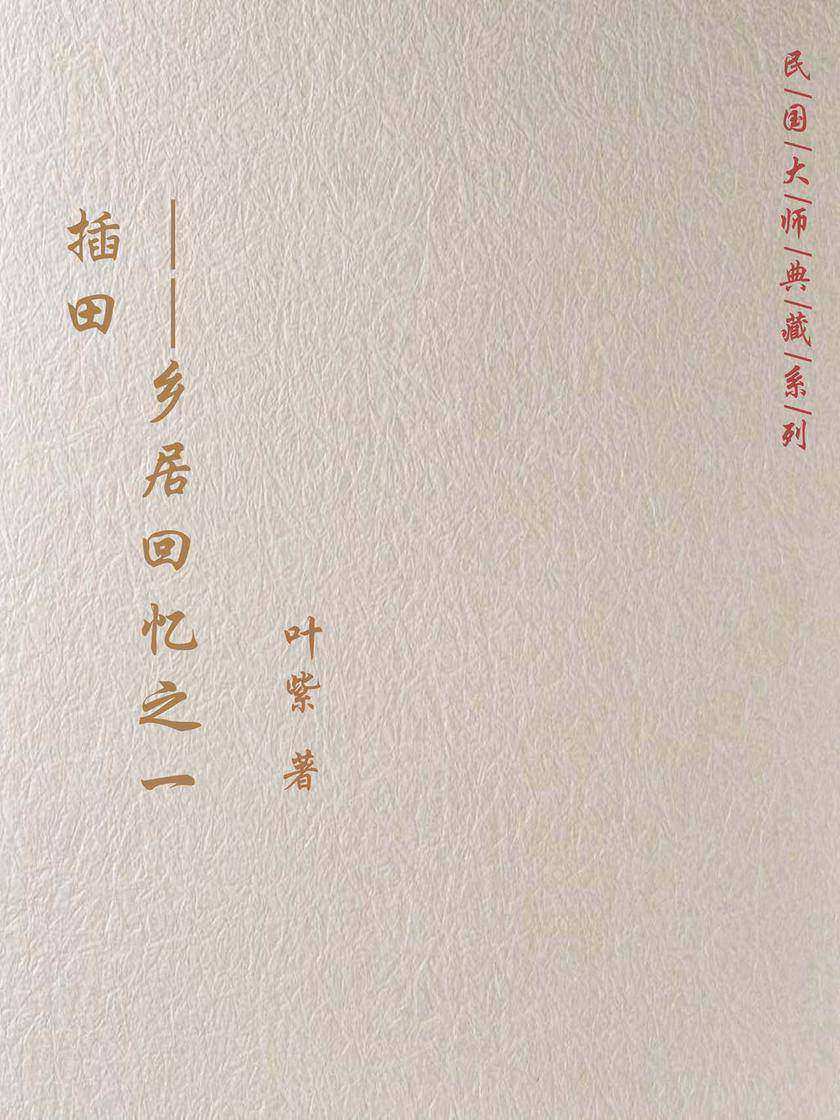 插田
——乡居回忆之一
叶紫 著
民|国|大|师|典|藏|系|列